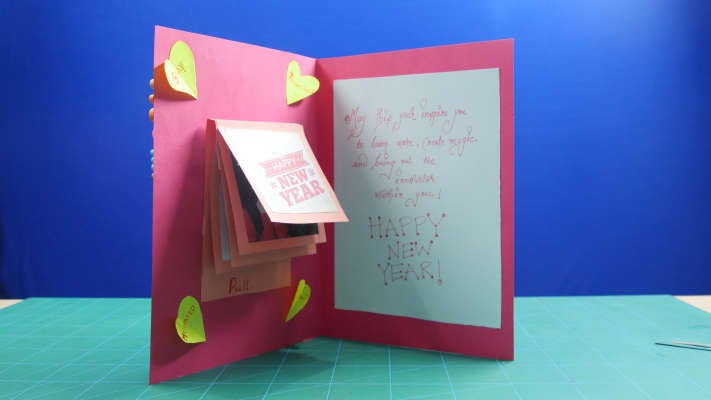 HAPPY
NEW
YEAR
Pull
May this year inspire you
to learn more, create magic
and bring out the
innovator
within you!
HAPPY
NEW
YEAR!